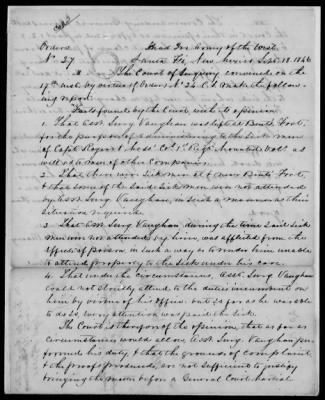 Orders Head Qrs Army of the West
No. 27 Santa Fe, New Mexico Sept. 18. 1846
II. The Court of Inquiry convened on the
17th inst. by virtue of Orders No 24 C. S. make the follow-
ing report.
Facts found by the Court, with its opinion
1. That Asst. Surg. Vaughan was left at Bent's Fort,
for the purpose of administering to the sick men
of Capt. Co. 1st Regt. Mounted Vols. as
well as to men of other Companies.
2. That there were sick men at & near Bent's Fort,
& that some of the said sick men were not attended
by Asst. Surg. Vaughan, in such a manner as their
situation required.
3. That Asst. Surg. Vaughan, during the time said sick
men were not attended by him, was afflicted from the
effects of poison in such a way as to render him unable
to attend properly to the sick under his care.
4. That under the circumstances, Asst. Surg. Vaughan
could not strictly attend to the duties incumbent on
him by virtue of his office. but so far as he was able
to do so, every attention was paid the sick.
The Court is therefore of the opinion, that as far as
circumstances would allow, Asst. Surg. Vaughan per-
formed his duty, & that the grounds of complaint,
& the proofs produced, are not sufficient to justify
bringing the matter before a General Court Martial